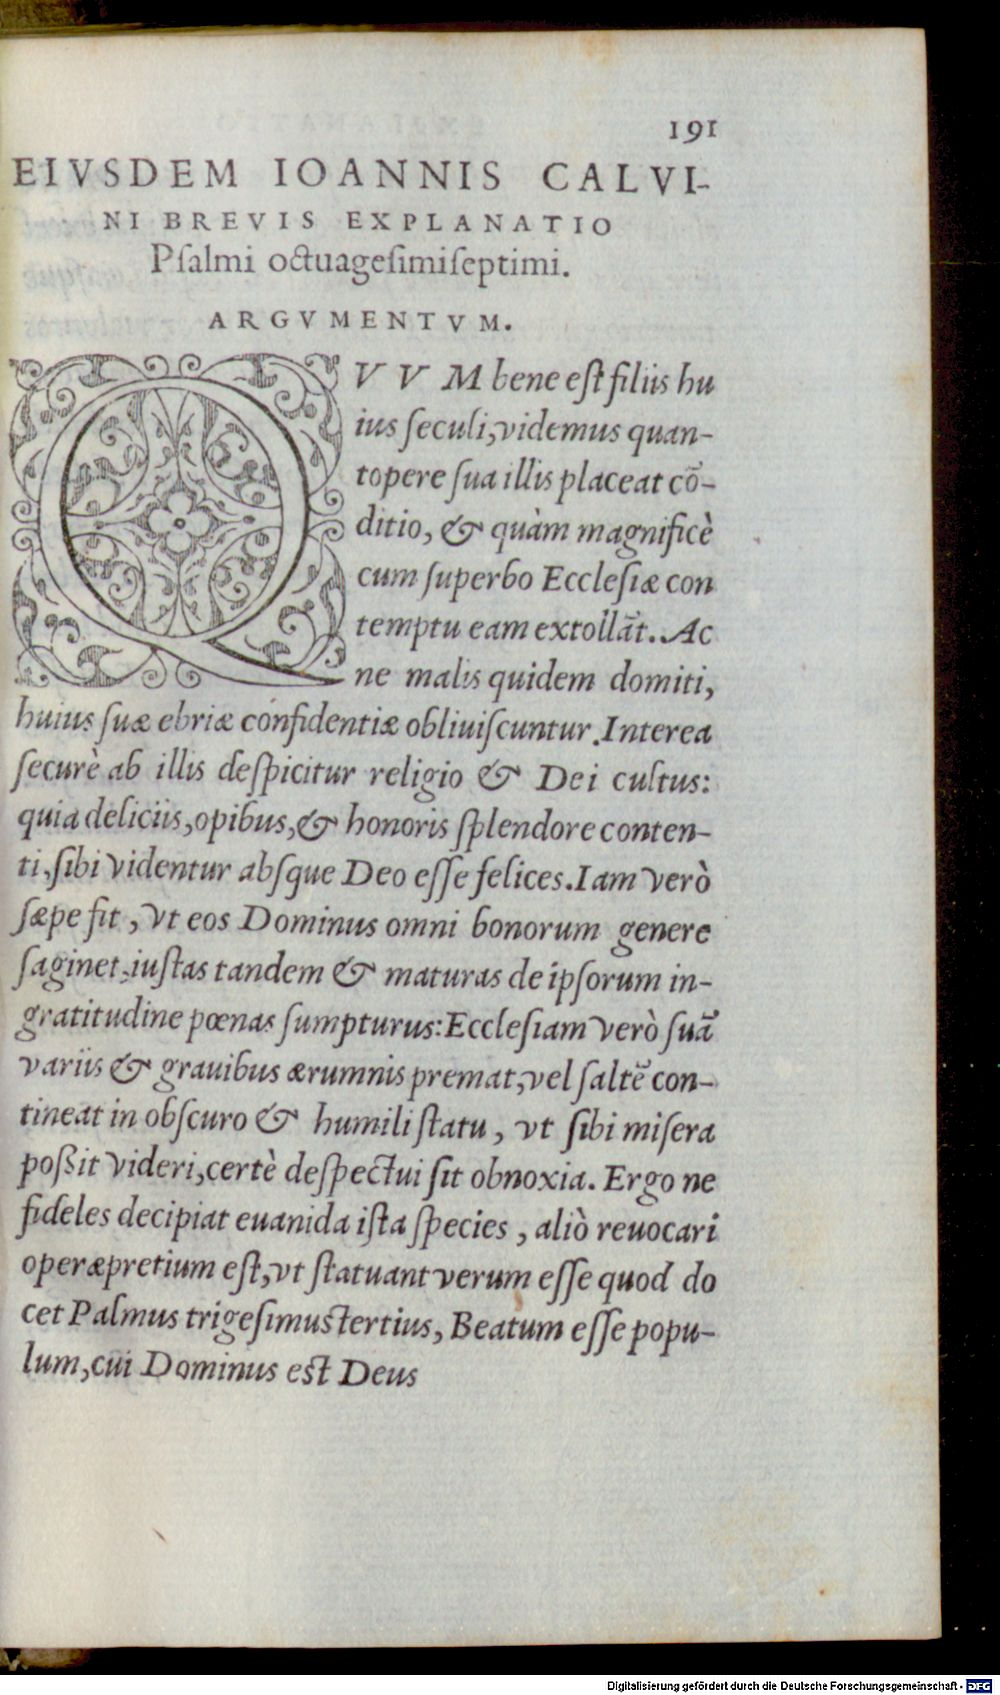 191
EIVSDEM IOANNIS CALVI-
NI BREVIS EXPLANATIO
Psalmi octuagesimiseptimi.
ARGVMENTVM.
QVVM bene est filiis hu
ius seculi, videmus quan-
topere sua illis placeat cō-
ditio, & quàm magnificè
cum superbo Ecclesiæ con
temptu eam extollāt. Ac
ne malis quidem domiti,
huius suæ ebriæ confidentiæ obliuiscuntur. Interea
securè ab illis despicitur religio & Dei cultus:
quia deliciis, opibus, & honoris splendore conten-
ti, sibi videntur absque Deo esse felices. Iam verò
sæpe fit, vt eos Dominus omni bonorum genere
saginet, iustas tandem & maturas de ipsorum in-
gratitudine pœnas sumpturus: Ecclesiam verò suā
variis & grauibus ærumnis premat, vel saltē con-
tineat in obscuro & humili statu, vt sibi misera
poßit videri, certè despectui sit obnoxia. Ergo ne
fideles decipiat euanida ista species, aliò reuocari
operæpretium est, vt statuant verum esse quod do
cet Palmus trigesimustertius, Beatum esse popu-
lum, cui Dominus est Deus
Digitalisierung gefördert durch die Deutsche Forschungsgemeinschaft - DFG